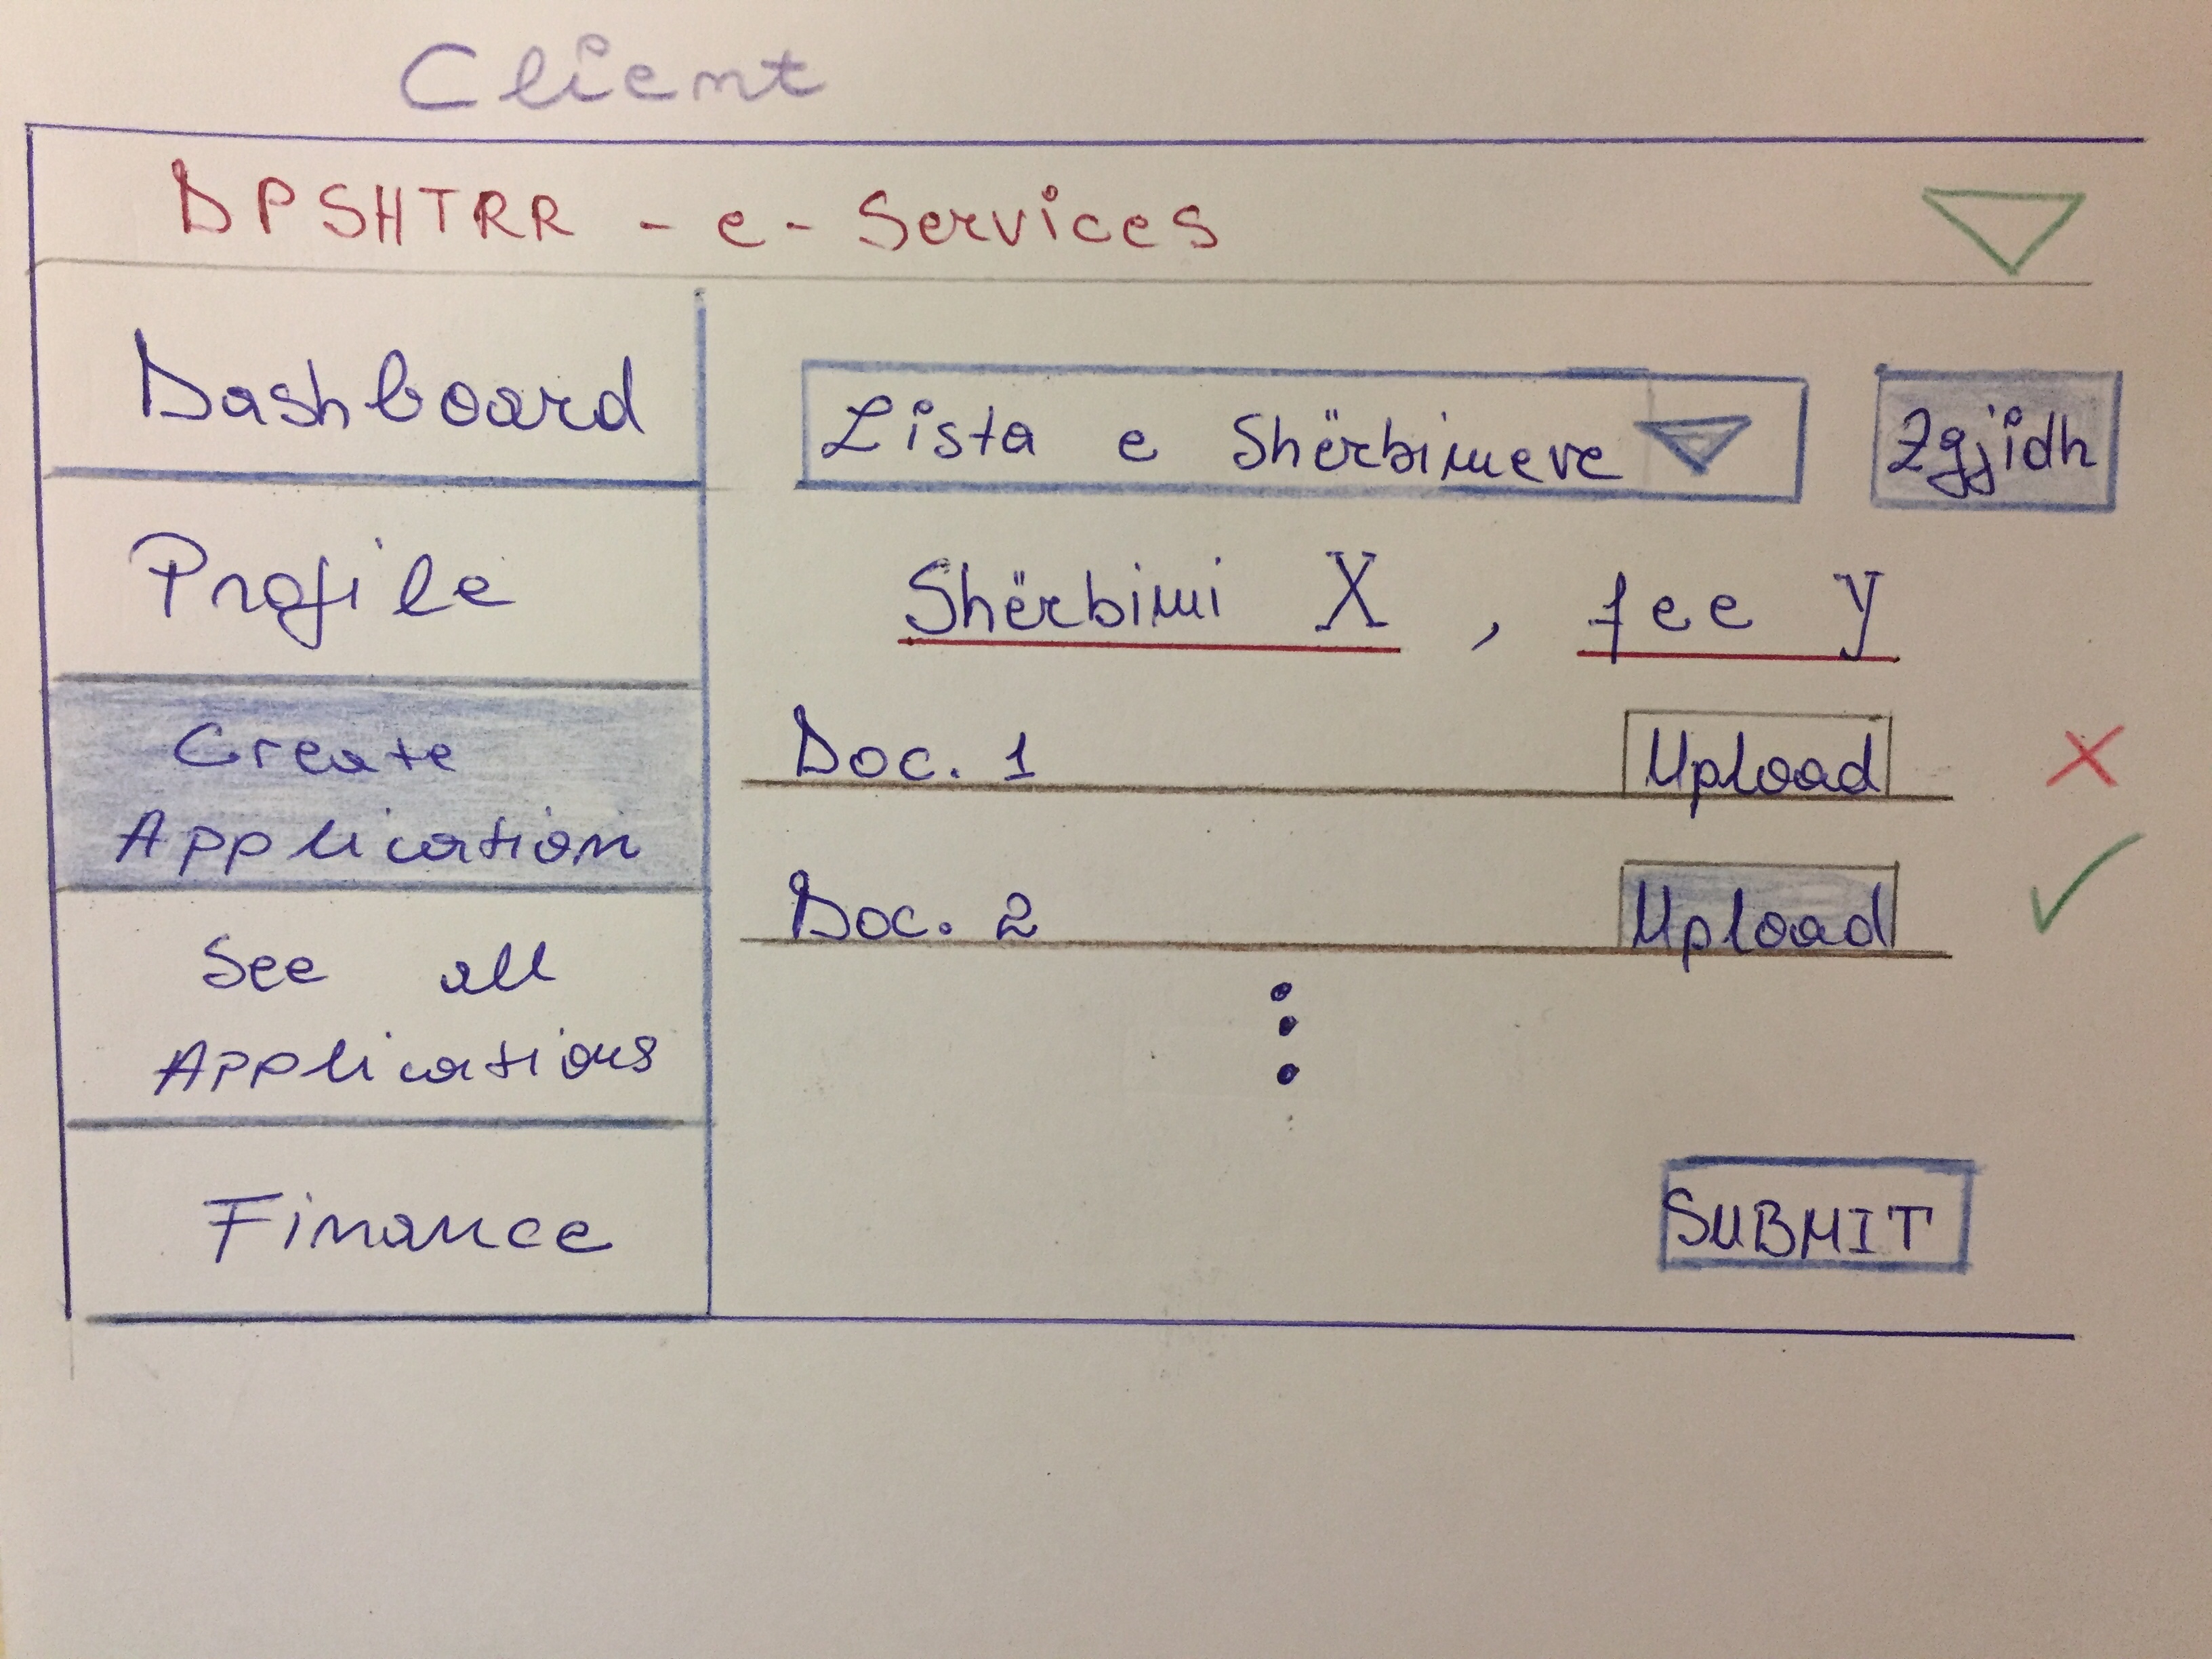 Client
DPSHTRR - e - Services
Dashboard
Profile
Create
Application
See all
Applications
Finance
Lista e Shërbimeve
Zgjidh
Shërbimi X , fee y
Doc. 1 Upload
Doc. 2 Upload
SUBMIT